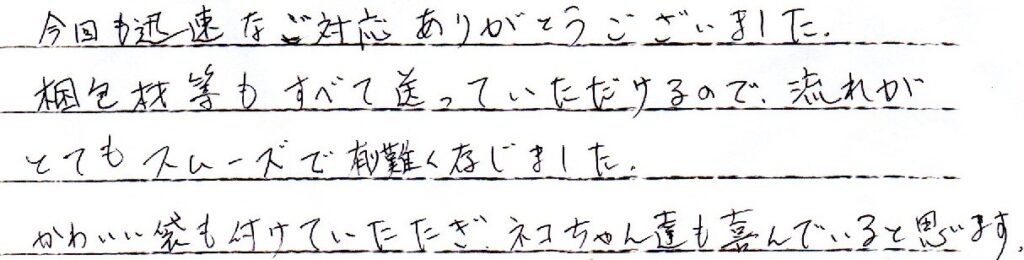 今回も迅速なご対応ありがとうございました.
梱包材等もすべて送っていただけるので、流れが
とてもスムーズで有難く存じました.
かわいい袋も付けていたたぎ、ネコちゃん達も喜んでいると思います.